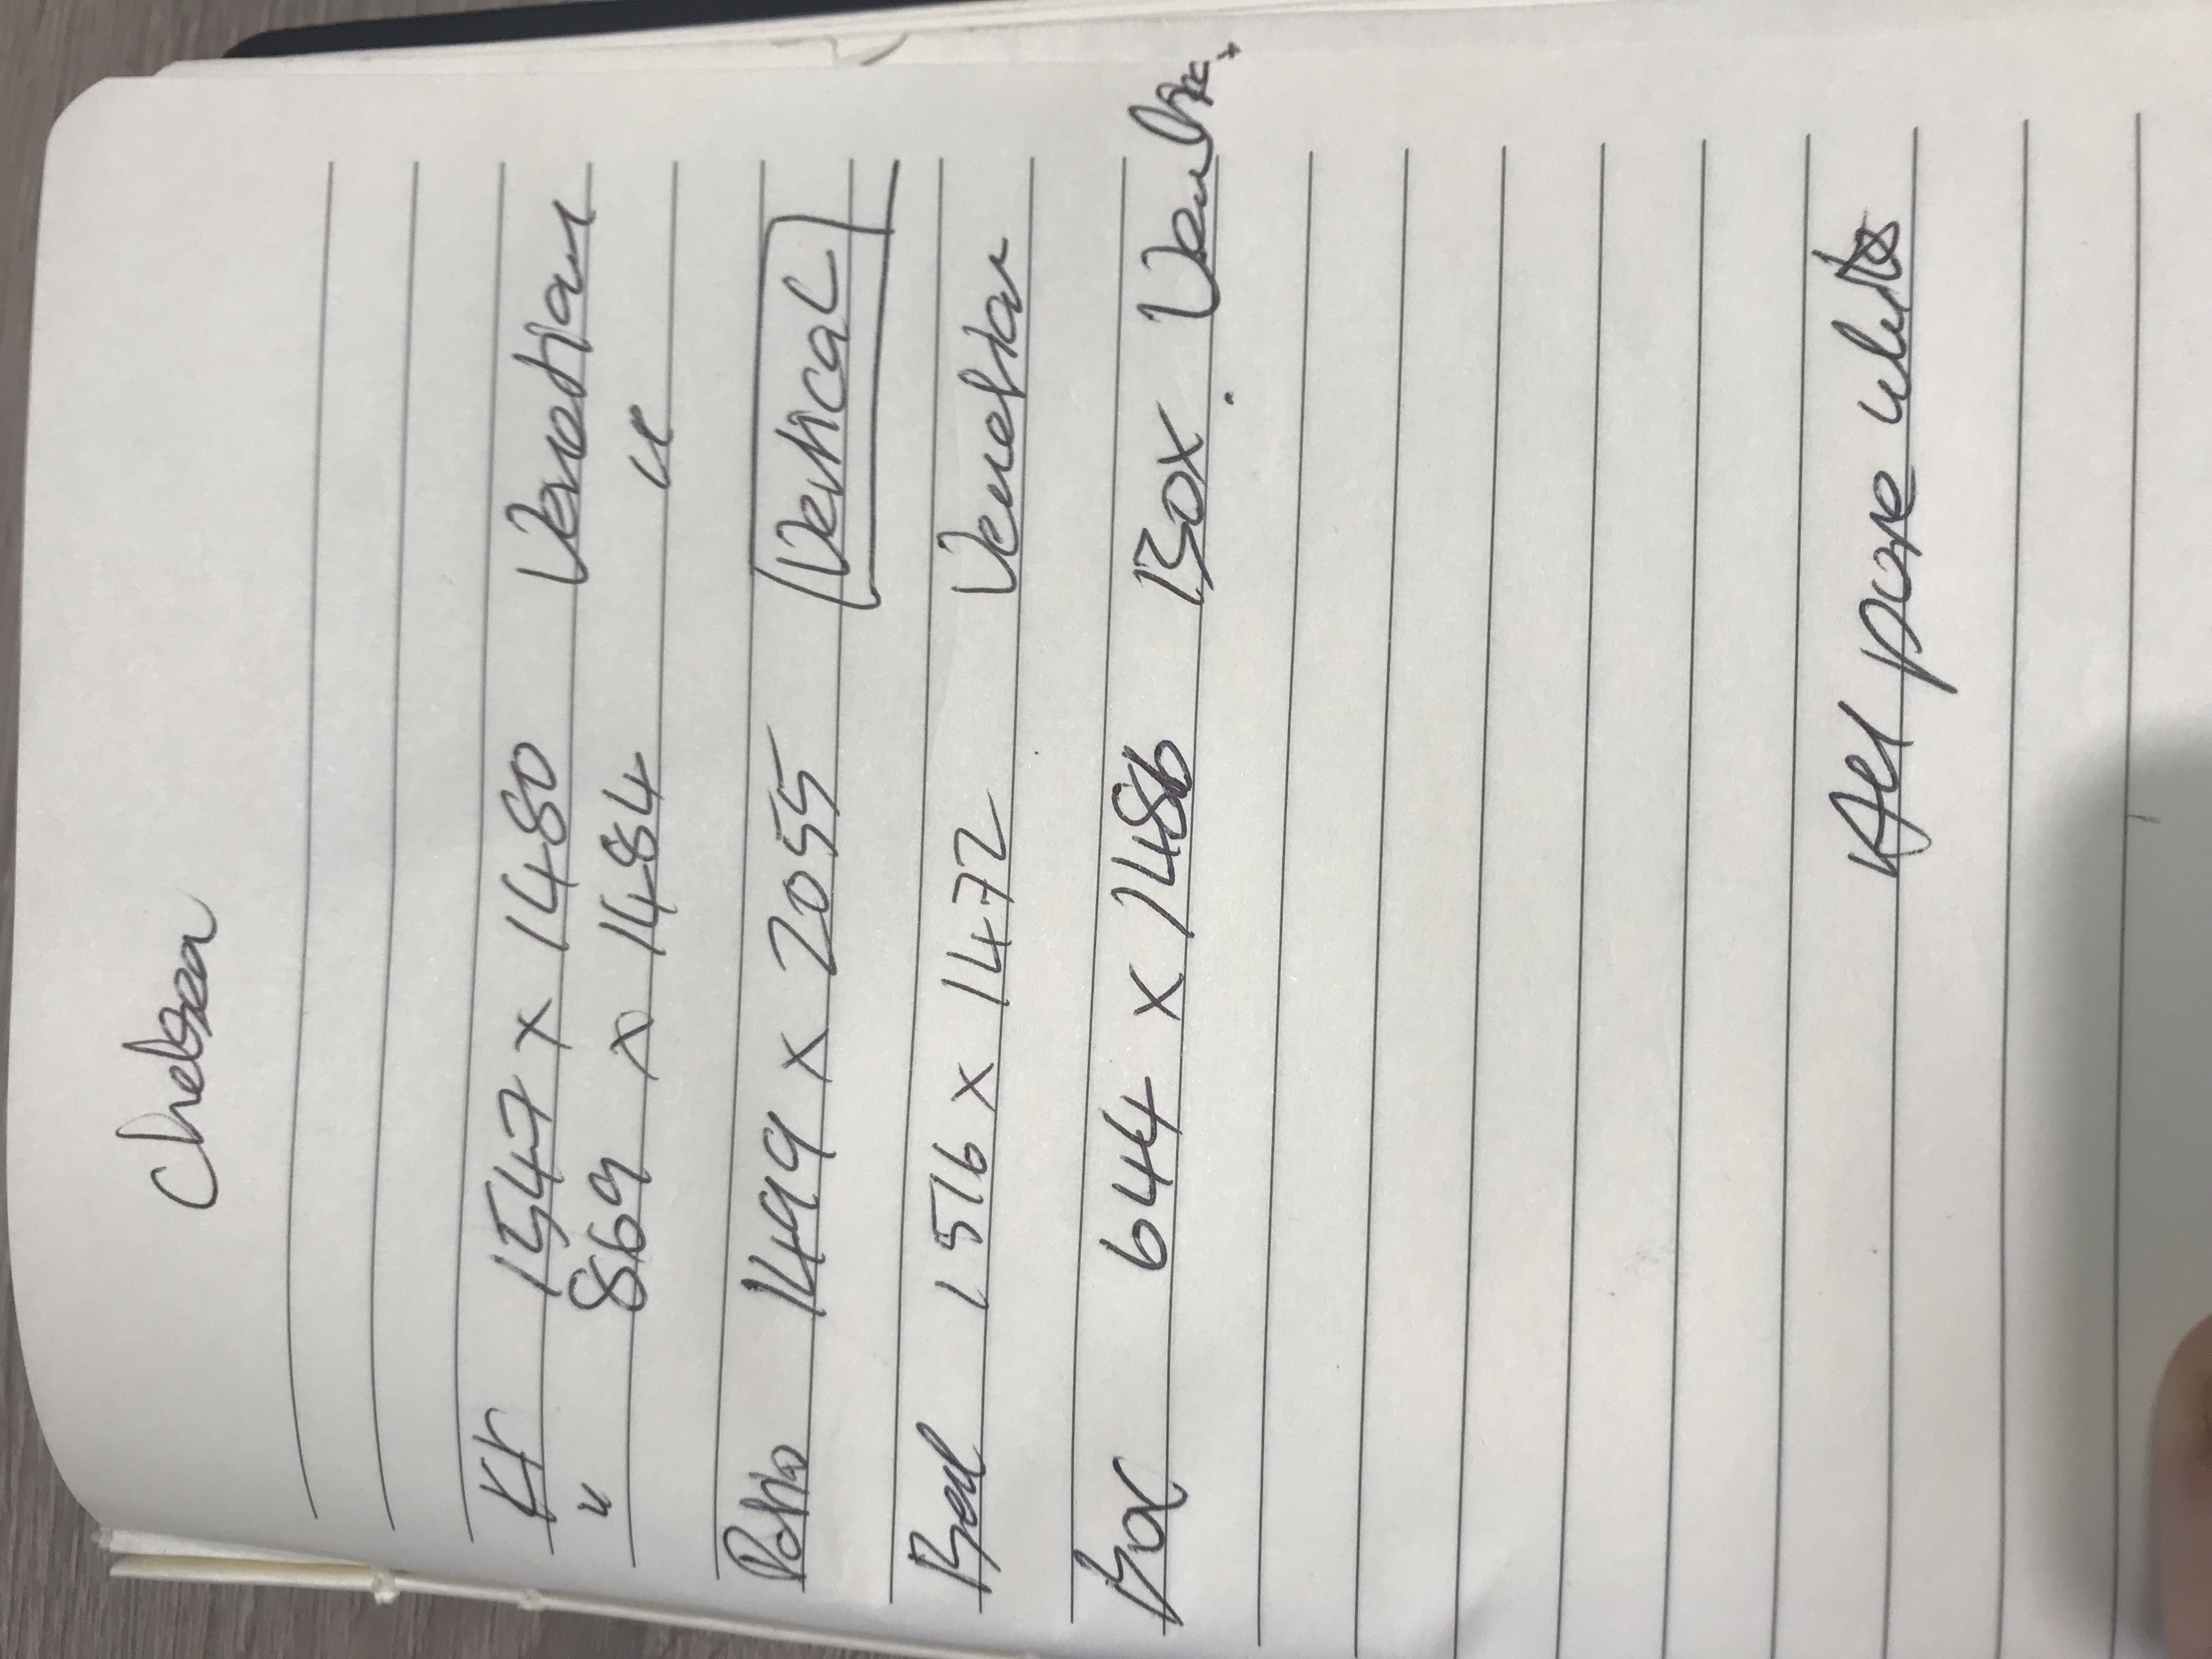 Chelsea
Kit 1547 x 1480 Venetian
" 869 x 1484 "
Patio 1499 x 2055 Vertical
Bed 1516 x 1472 Venetian
Box 644 x 1486 Box Venetian
All pure white